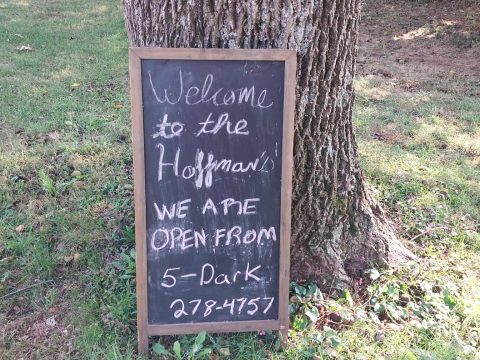 Welcome
to the
Hoffman's
WE ARE
OPEN FROM
5-Dark
278-4757